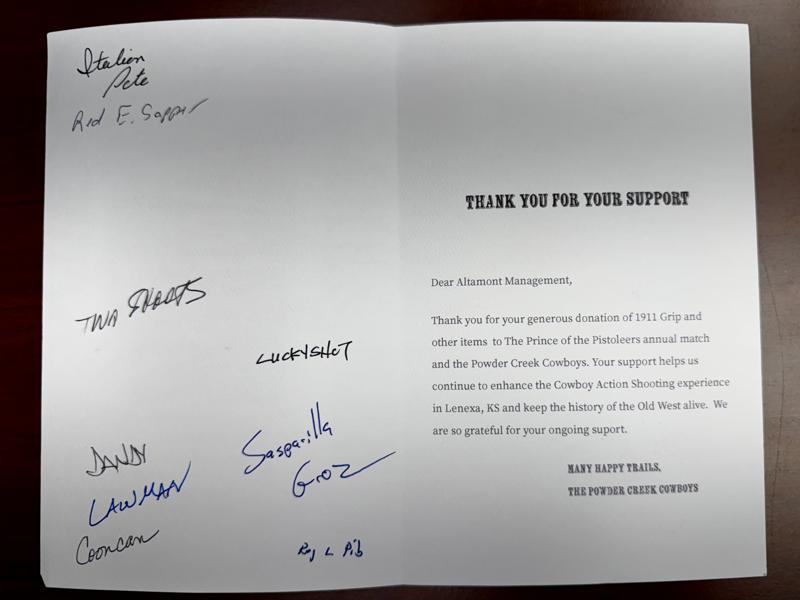 Italian
Pete
Red E. Sapper
TWA SHOOTS
LUCKYSHOT
DANDY
LAWMAN
Sasparilla
Groz
Cooncan
THANK YOU FOR YOUR SUPPORT
Dear Altamont Management,
Thank you for your generous donation of 1911 Grip and
other items to The Prince of the Pistoleers annual match
and the Powder Creek Cowboys. Your support helps us
continue to enhance the Cowboy Action Shooting experience
in Lenexa, KS and keep the history of the Old West alive. We
are so grateful for your ongoing suport.
MANY HAPPY TRAILS,
THE POWDER CREEK COWBOYS